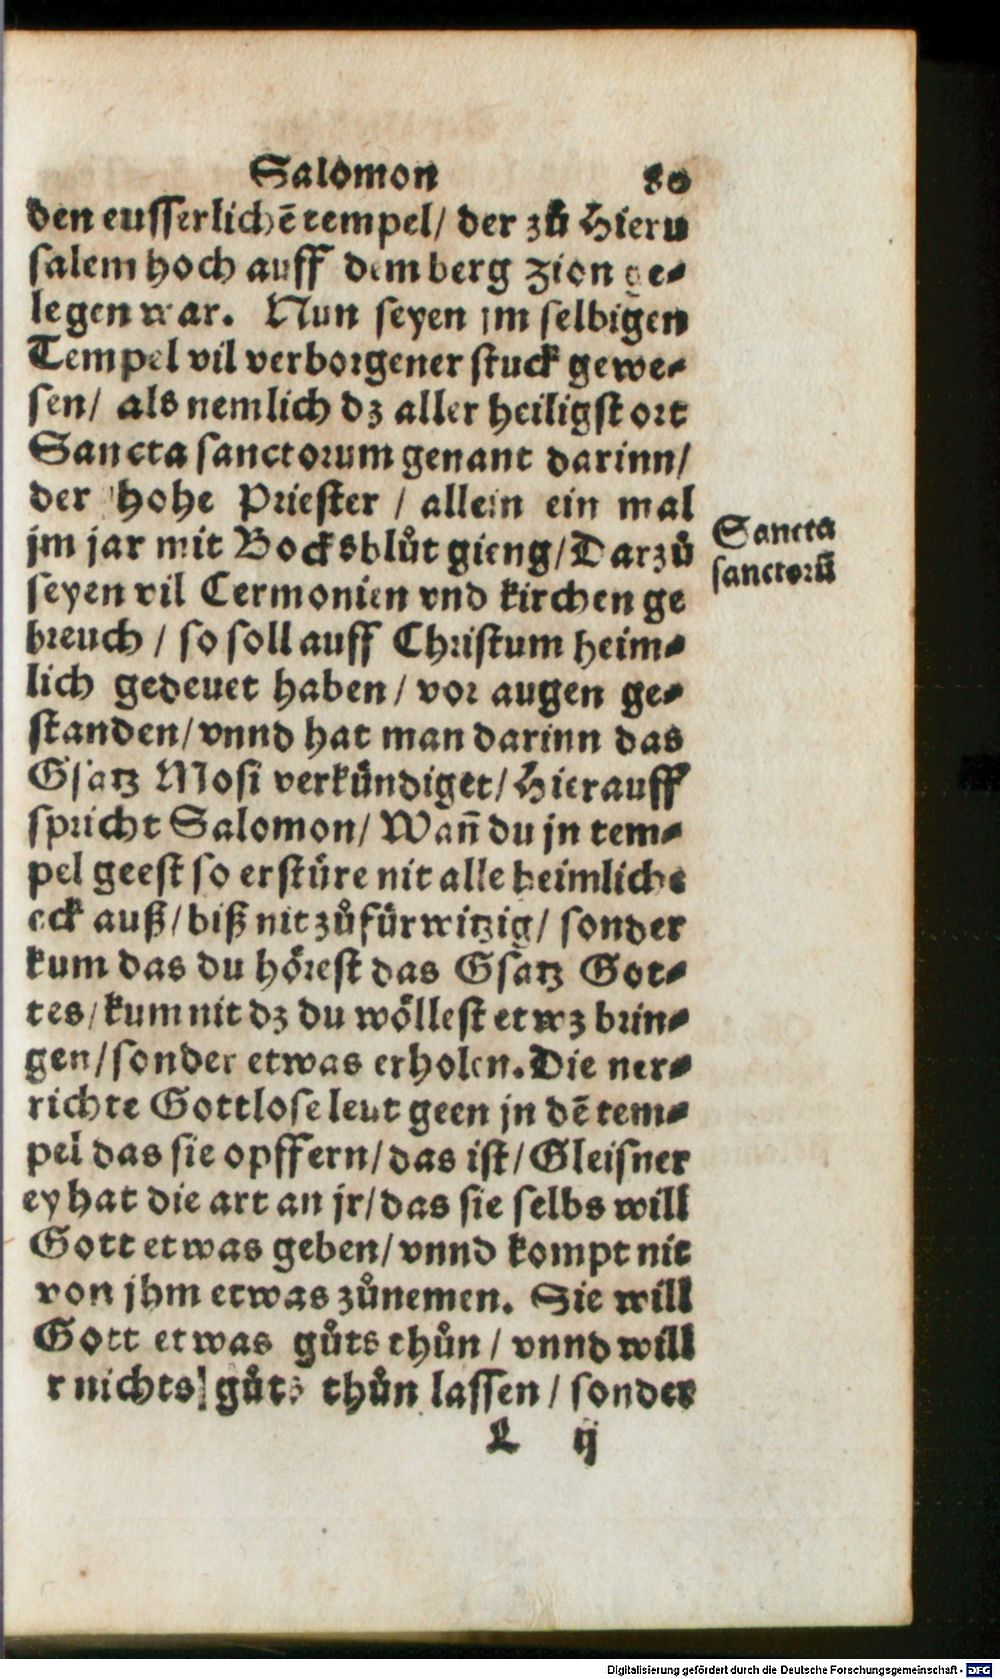 Salomon 80
den eusserlichē tempel/ der zů Hieru
salem hoch auff dem berg Zion ge⸗
legen war. Nun seyen jm selbigen
Tempel vil verborgener stuck gewe⸗
sen/ als nemlich dz aller heiligst ort
Sancta sanctorum genant darinn/
der hohe Priester / allein ein mal
jm jar mit Bocksblůt gieng/ Darzů
seyen vil Cermonien vnd kirchen ge
breuch / so soll auff Christum heim⸗
lich gedeuet haben/ vor augen ge⸗
standen/ vnnd hat man darinn das
Gsatz Mosi verkündiget/ Hierauff
spricht Salomon/ Wañ du jn tem⸗
pel geest so erstüre nit alle heimliche
eck auß/ biß nit zůfürwitzig/ sonder
kum das du hörest das Gsatz Got⸗
tes/ kum nit dz du wöllest etwz brin⸗
gen/ sonder etwas erholen. Die ner⸗
richte Gottlose leut geen jn dē tem⸗
pel das sie opffern/ das ist/ Gleisner
ey hat die art an jr/ das sie selbs will
Gott etwas geben/ vnnd kompt nit
von jhm etwas zůnemen. Sie will
Gott etwas gůts thůn / vnnd will
r nichts gůts thůn lassen / sonder
L ij
Sancta
sanctorū
Digitalisierung gefördert durch die Deutsche Forschungsgemeinschaft - DFG